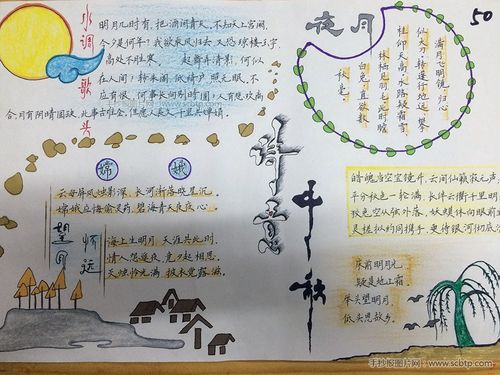 水调歌头
明月几时有,把酒问青天,不知天上宫阙,
今夕是何年?我欲乘风归去,又恐琼楼玉宇,
高处不胜寒, 起舞弄清影,何似
在人间?转朱阁,低绮户,照无眠,不
应有恨,何事长向别时圆?人有悲欢离
合,月有阴晴圆缺,此事古难全,但愿人长久,千里共婵娟
夜月
满月飞明镜,归心
折大刀。转蓬行地远,攀
桂仰天高。水路疑霜雪,
林栖见羽毛。此时瞻
白兔,直欲数
秋毫。
50
嫦娥
云母屏风烛影深,长河渐落晓星沉。
嫦娥应悔偷灵药,碧海青天夜夜心
望月怀远
海上生明月 天涯共此时
情人怨遥夜 竟夕起相思
灭烛怜光满 披衣觉露滋
诗意中秋
皓魄当空宝镜升,云间仙籁寂无声
平分秋色一轮满,长伴云衢千里明
狡兔空从弦外落,妖蟆休向眼前
灵槎拟约同携手,更待银河彻底
床前明月光
疑是地上霜
举头望明月
低头思故乡。
手抄报图片网 www.scbtp.com